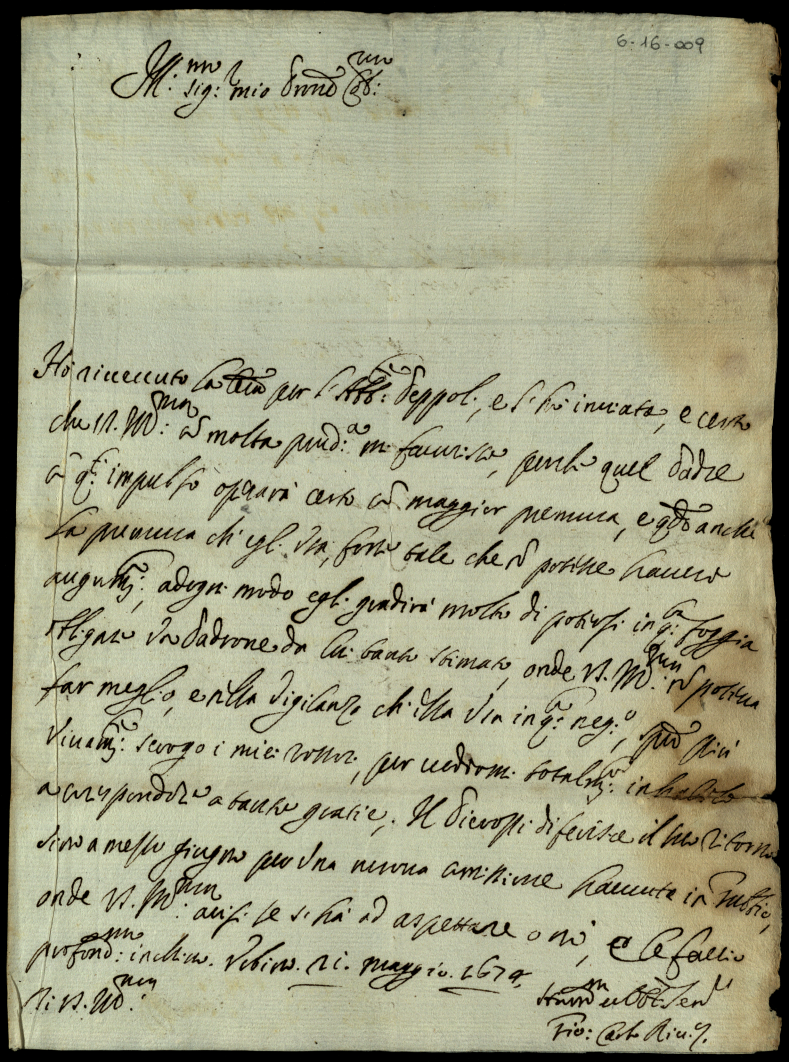 6-16-009
Ill.mo Sig.r mio Pron Col.mo
Ho riceuuto la lra per l'Abb.e Peppoli, e l'hò inuiata, e certo
che V.S. Ill.ma cõ molta prud.a mi fauorisce, perche quel Padre
cõ q.to impulso operarà certo cõ maggior premura, e qdo anche
la premura ch'egli usa, fosse tale che nõ potesse hauere
augum.to, adogni modo egli gradirà molto di potersi in q.ta foggia
obligare un Padrone da lui tanto stimato, onde V.S. Ill.ma nõ poteua
far meglio, e nella vigilanza ch'ella usa in q.to neg.o, più
viuam.te scorgo i miei rossori, per uedermi totalm.te inhabile
a corrispondere a tante gratie. Il differisce il suo ritorno
sino a mezzo giugno per una nuoua comissione hauuta in Gubbio,
onde V.S. Ill.ma auisi se si hà ad aspettare o nò, e le faccio
profond.mo inchino. Urbino 21 maggio 1674
Di V.S. Ill.ma
Humil.mo et Obl. Seru.
Gio: Carlo